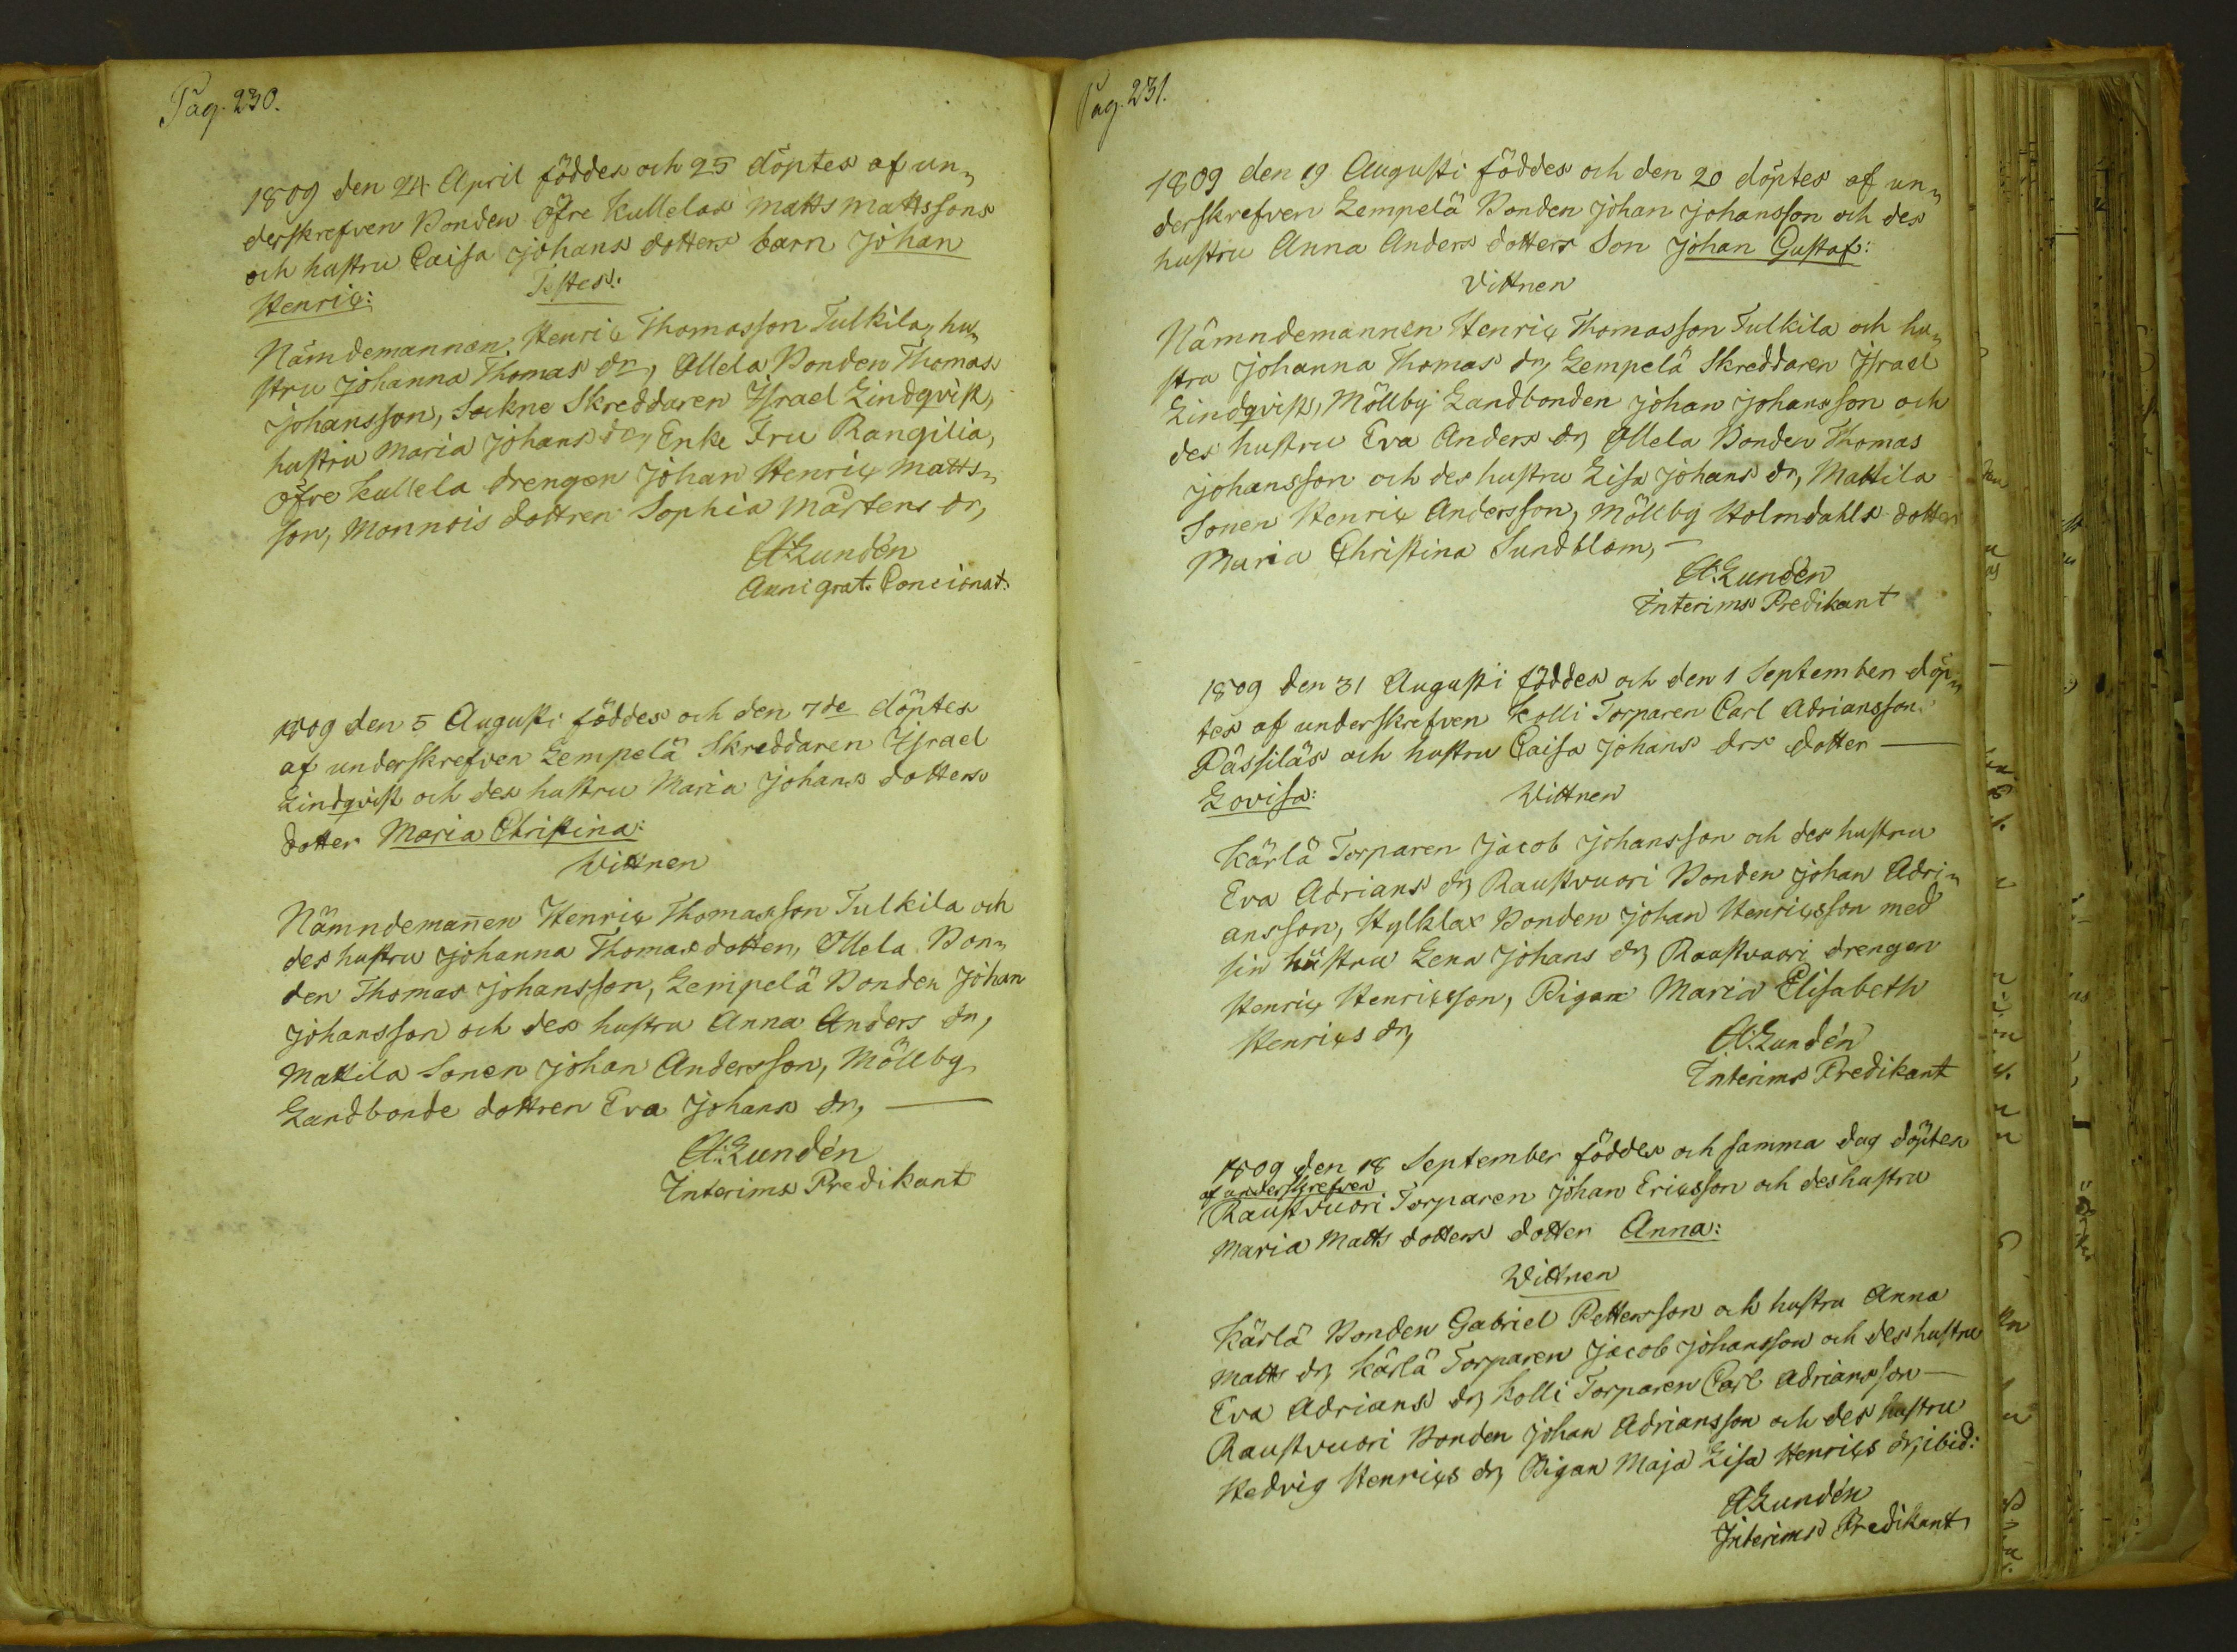 Pag. 230.
1809 den 24 April föddes och 25 döptes af un„
derskrefven Bonden Öfre Kullelas Matts Mattssons
och hustru Caisa Johans dotters barn Johan
Henric: Testes:
Nämdemannen Henric Thomasson Tulkila, hu„
stru Johanna Thomas dr, Ollela Bonden Thomas
Johansson, Sockne Skreddaren Israel Lindqvist,
hustru Maria Johans dr, Enke Fru Rangilia,
Öfre Kullela drengen Johan Henric Matts„
son, Monnois dottren Sophia Mårtens dr,
A: Lundén
Anni grat. Concionat.
1809 den 5 Augusti föddes och den 7de döptes
af underskrefven Lempelä Skreddaren Israel
Lindqvist och des hustru Maria Johans dotters
dotter Maria Christina:
Wittnen
Nämndemañen Henric Thomasson Tulkila och
des hustru Johanna Thomas dotter, Ollela Bon„
den Thomas Johansson, Lempelä Bonden Johan
Johansson och des hustru Anna Anders dr,
Mattila Sonen Johan Andersson, Möllby
Landbonde dottren Eva Johans dr, —
A: Lundén
Interims Predikant
Pag. 231.
1809 den 19 Augusti föddes och den 20 döptes af un„
derskrefven Lempelä Bonden Johan Johansson och des
hustru Anna Anders dotters Son Johan Gustaf:
Vittnen
Nämndemannen Henric Thomasson Tulkila och hu„
stru Johanna Thomas dr, Lempelä Skreddaren Israel
Lindqvist, Möllby Landbonden Johan Johansson och
des hustru Eva Anders dr, Ollela Bonden Thomas
Johansson och des hustru Lisa Johans dr, Mattila
Sonen Henric Andersson, Möllby Holmdahls dotter
Maria Christina Sundblom, —
A: Lundén
Interims Predikant
1809 den 31 Augusti föddes och den 1 September döp„
tes af underskrefven Kolli Torparen Carl Adriansson
Pässiläs och hustru Caisa Johans drs dotter —
Lovisa: Wittnen
Kärlä Torparen Jacob Johansson och des hustru
Eva Adrians dr, Raustvuori Bonden Johan Adri„
ansson, Hylklax Bonden Johan Henricsson med
sin hustru Lena Johans dr, Raustvuori drengen
Henric Henricsson, Pigan Maria Elisabeth
Henrics dr,
A: Lundén
Interims Predikant
1809 den 18 September föddes och samma dag döptes
af underskrefven
Raustvuori Torparen Johan Ericsson och des hustru
Maria Matts dotters dotter Anna:
Wittnen
Kärlä Bonden Gabriel Pettersson och hustru Anna
Matts dr, Kärlä Torparen Jacob Johansson och des hustru
Eva Adrians dr, Kolli Torparen Carl Adriansson —
Raustvuori Bonden Johan Adriansson och des hustru
Hedvig Henrics dr, Pigan Maja Lisa Henrics dr, ibid:
A Lundén
Interims Predikant